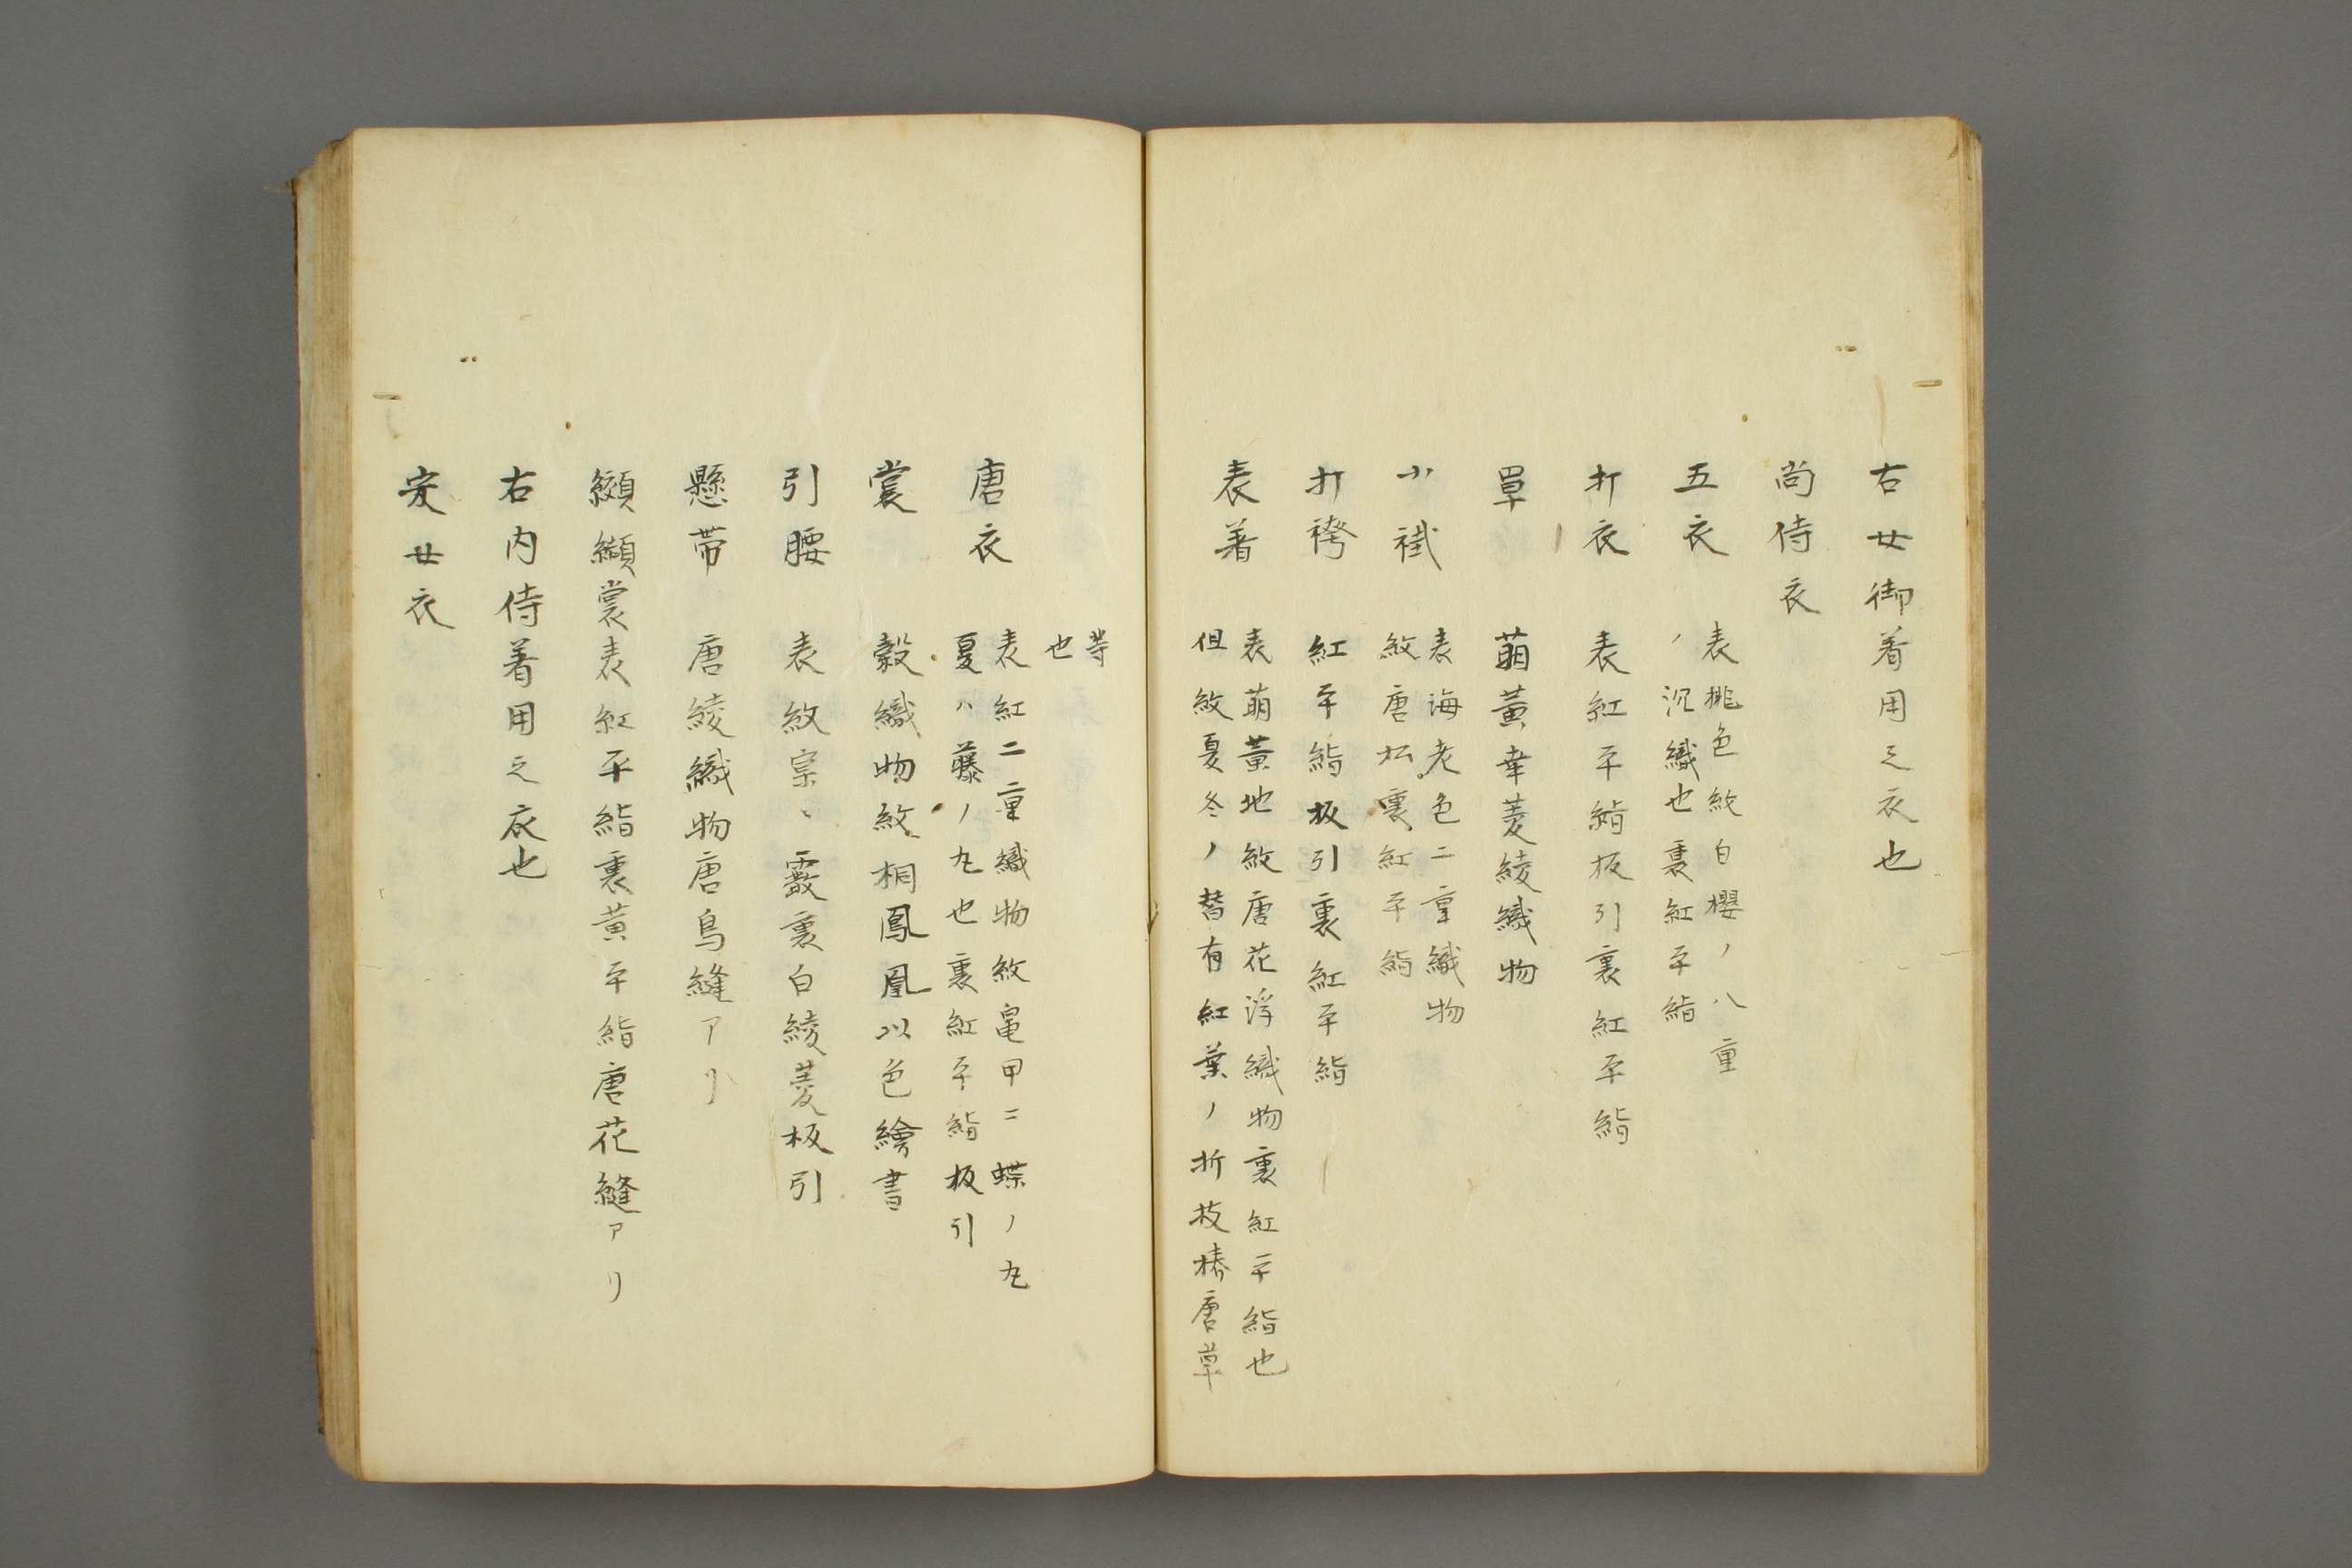 右女御着用之衣也
尚侍衣
五衣　表桃色紋白櫻ノ八重
ノ沉織也裏紅平絹
打衣　表紅平絹板引裏紅平絹
單　萌黄幸菱綾織物
小褂　表海老色二重織物
紋唐松裏紅平絹
打袴　紅平絹板引裏紅平絹
表着　表萌黄地紋唐花浮織物裏紅平絹也
但紋夏冬ノ替有紅葉ノ折枝椿唐草
等
也
唐衣　表紅二重織物紋亀甲ニ蝶ノ丸
夏ハ藤ノ丸也裏紅平絹板引
裳　縠織物紋桐鳳凰以色繪書
引腰　表紋窠ヽ霰裏白綾菱板引
懸帯　唐綾織物唐鳥縫アリ
纐纈裳表紅平絹裏黄平絹唐花縫アリ
右内侍着用之衣也
采女衣